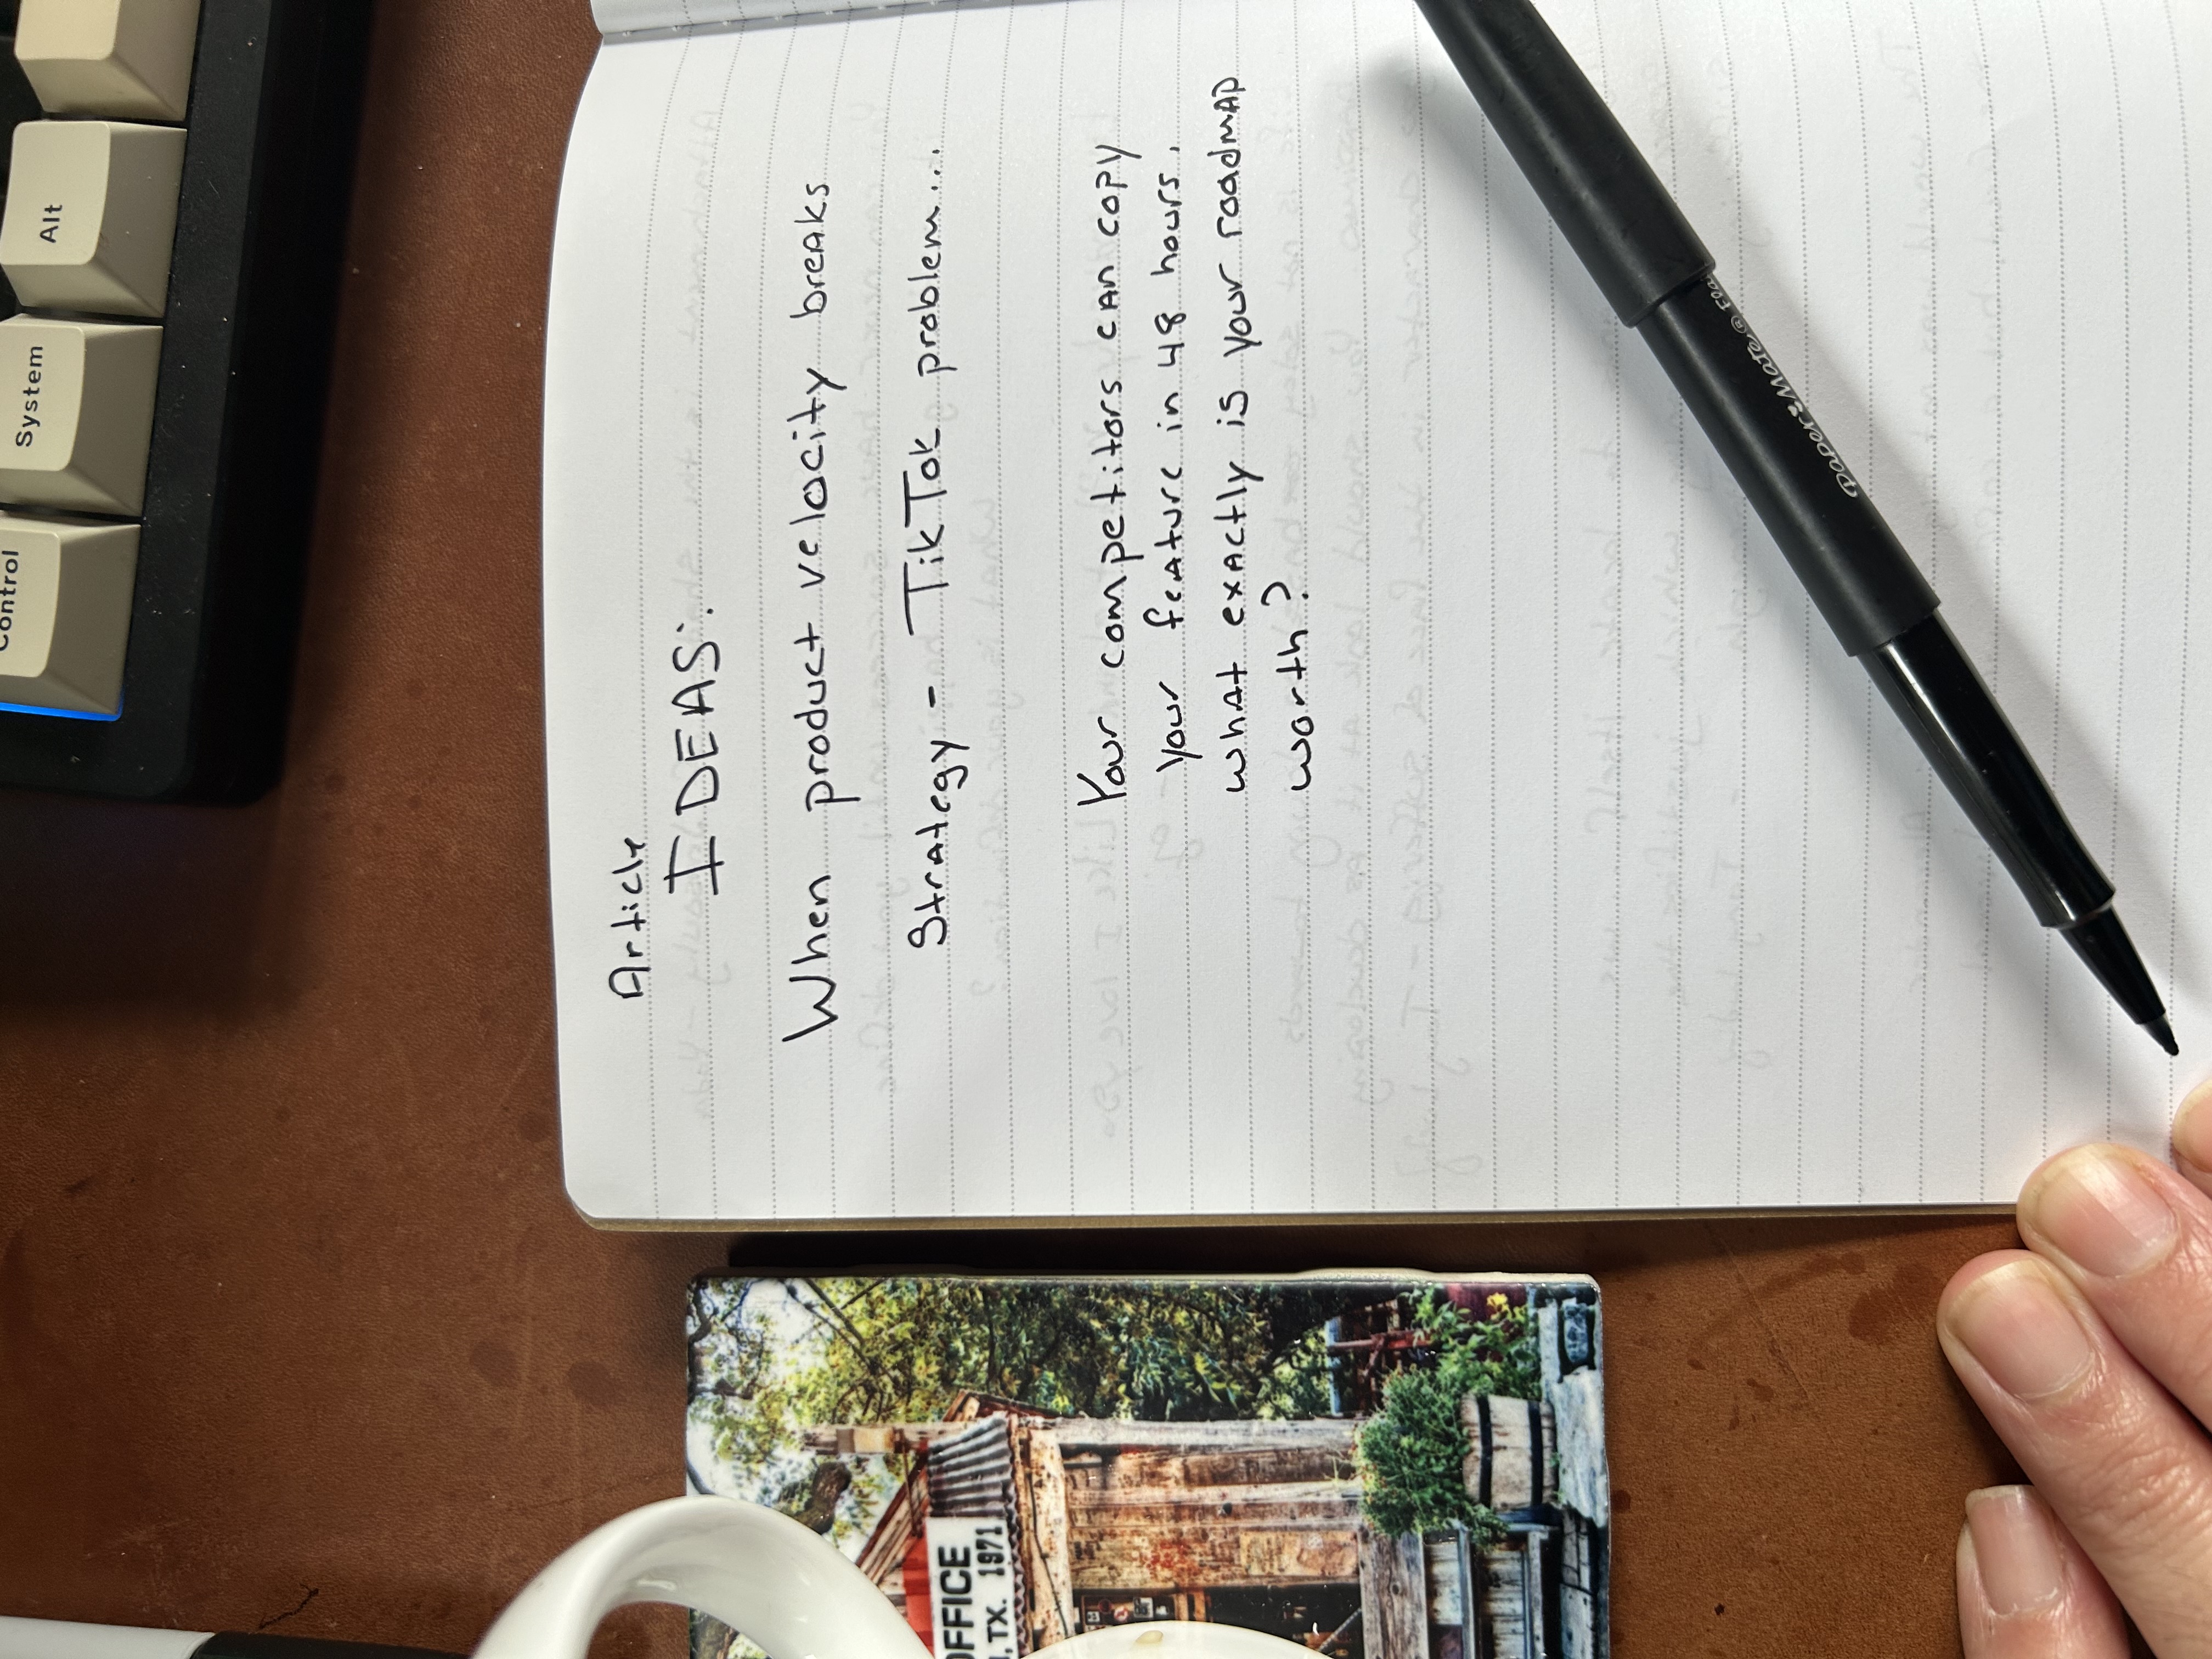 Article
IDEAS:
When product velocity breaks
Strategy - TikTok problem...
Your competitors can copy
your feature in 48 hours.
what exactly is your roadmap
worth?
Alt
System
Control
Paper Mate®
OFFICE
, TX. 1971